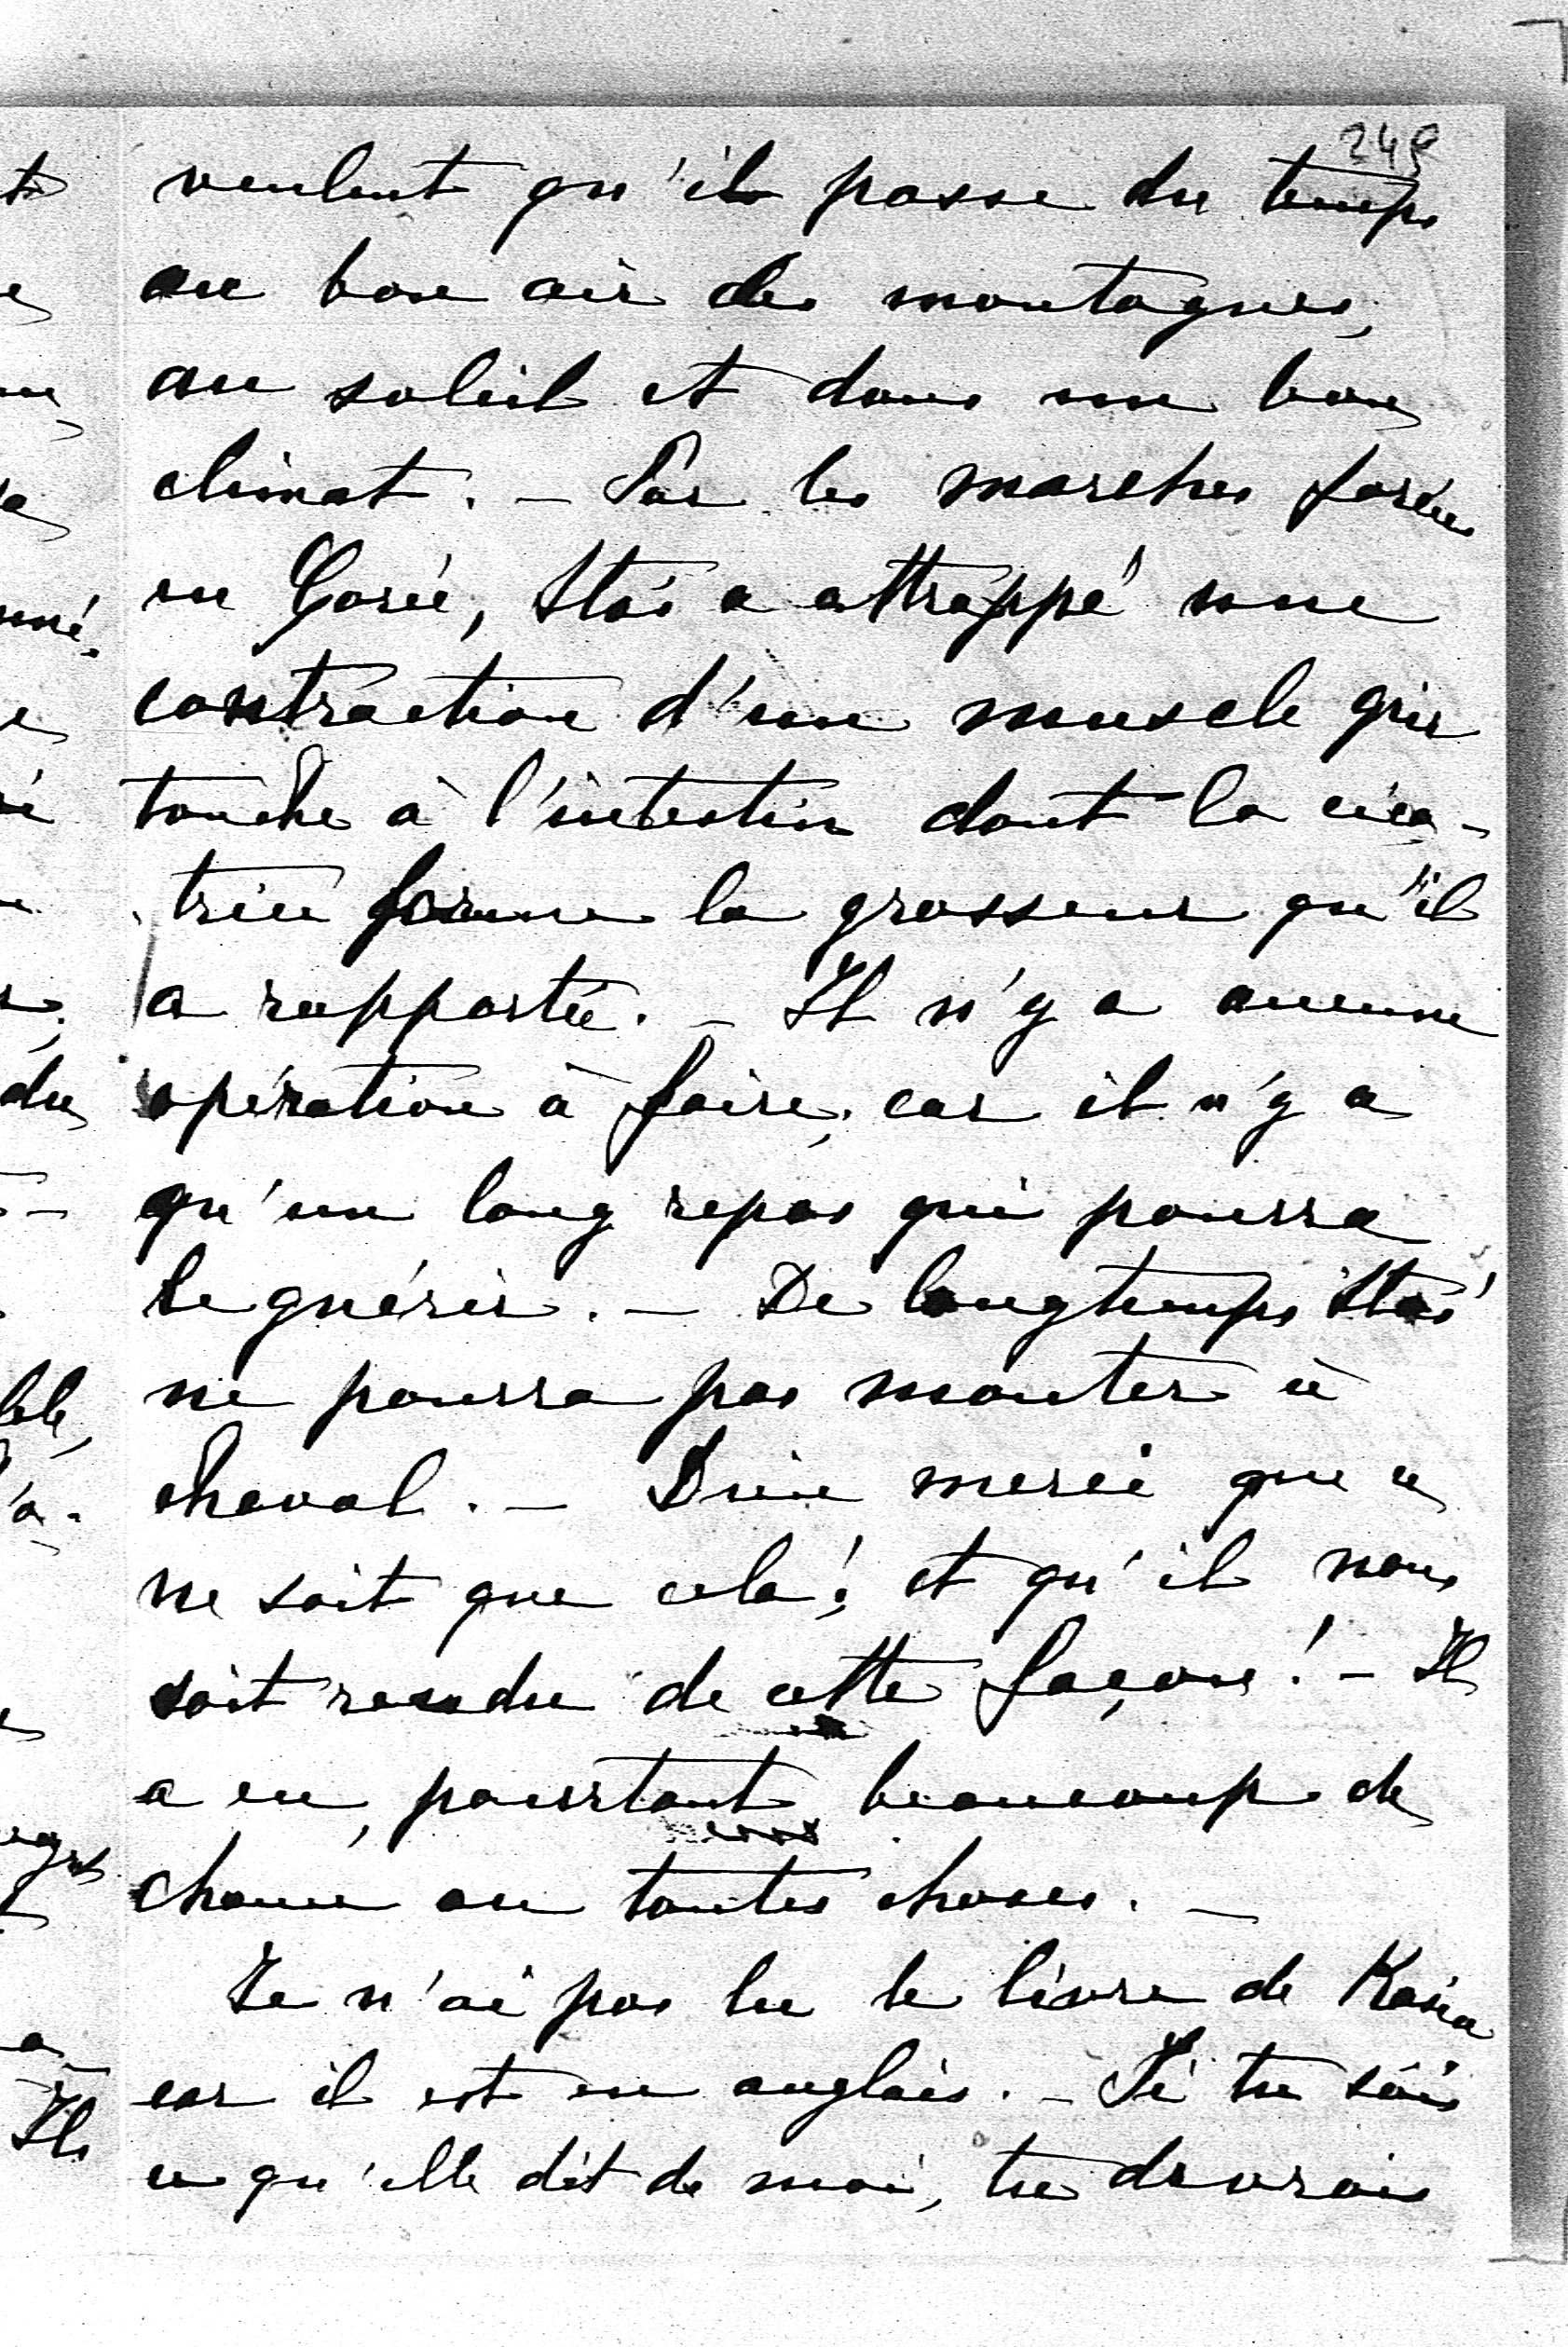 249
veulent qu'il passe du temps
au bon air des montagnes,
au soleil et dans un bon
climat. – Par les marches forcées
en Corée, Staś a attrappé une
contraction d'un muscle qui
touche à l'intestin dont la cica-
trice forme la grosseur qu'il
a rapportée. – Il n'y a aucune
opération à faire, car il n'y a
qu'un long repos qui pourra
le guérir. – De longtemps Staś
ne pourra pas monter à
cheval. – Dieu merci que ce
ne soit que cela! et qu'il nous
soit rendu de cette façon! – Il
a eu, pourtant, beaucoup de
chance en toutes choses. –
Je n'ai pas lu le livre de Kasia
car il est en anglais. – Si tu sais
ce qu'elle dit de moi, tu devrais